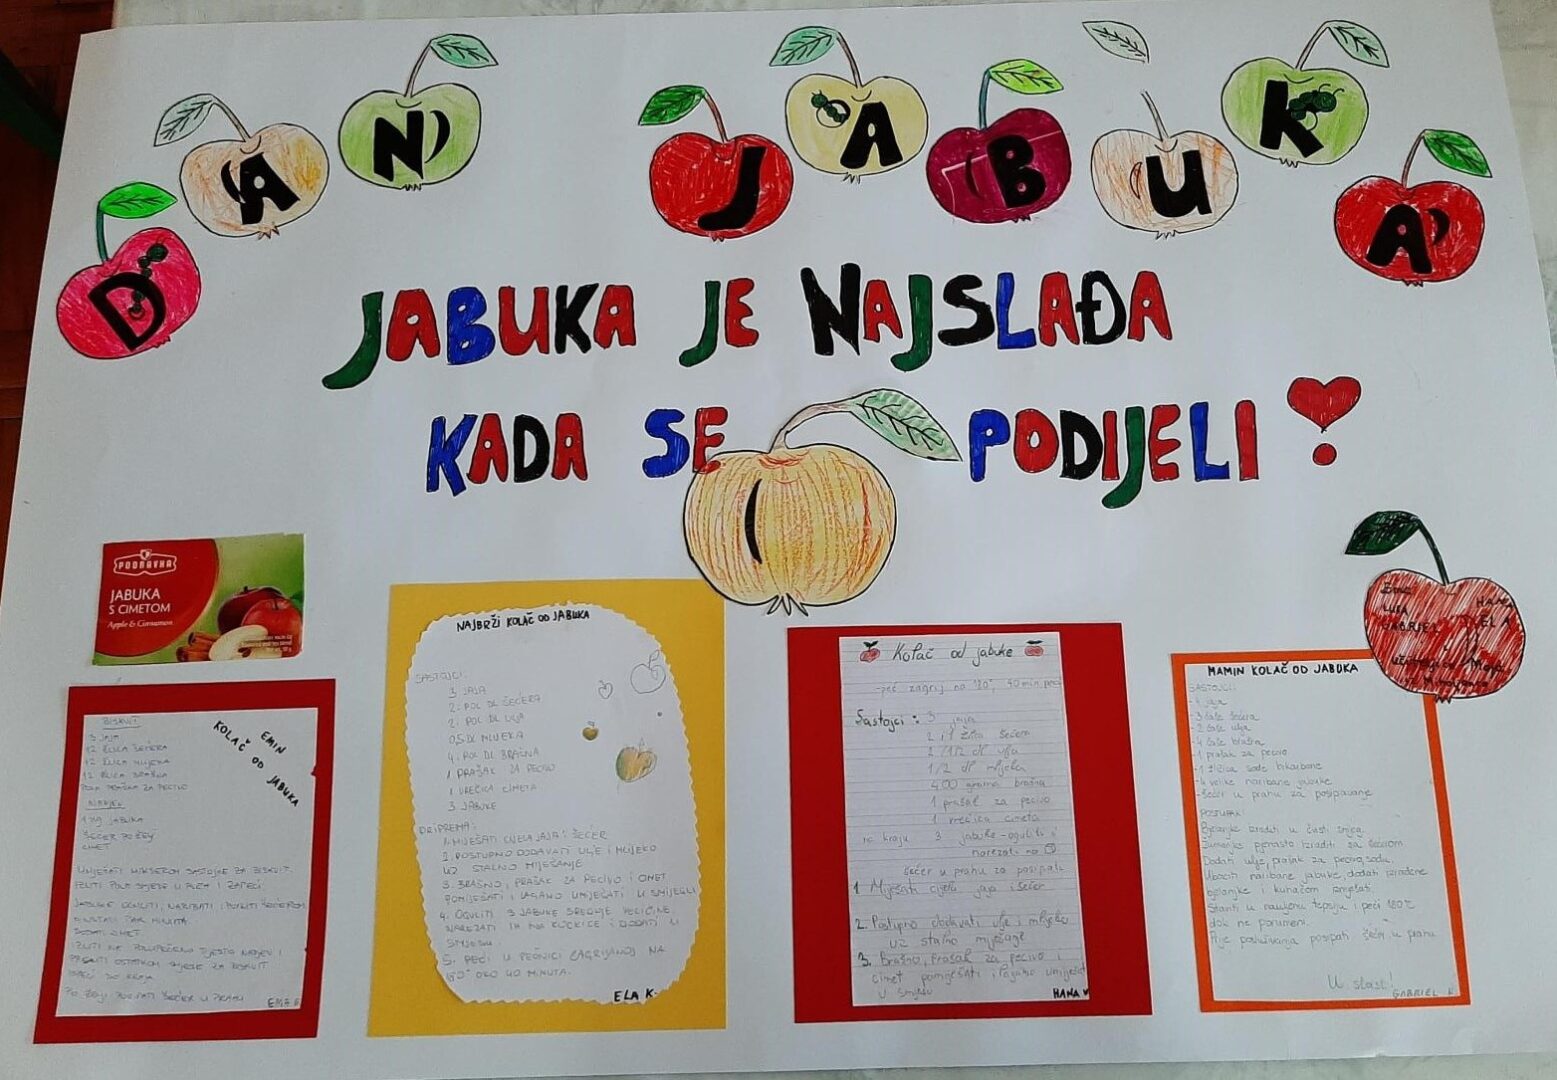 DAN JABUKA
JABUKA JE NAJSLAĐA
KADA SE PODIJELI!
PODRAVKA
JABUKA
S CIMETOM
Apple & Cinnamon
EMIN
KOLAČ OD JABUKA
BISKVIT
3 JAJA
12 ŽLICA ŠEĆERA
12 ŽLICA MLIJEKA
12 ŽLICA BRAŠNA
POLA PRAŠKA ZA PECIVO
NADJEV
1 kg JABUKA
ŠEĆER PO ŽELJI
CIMET
UMIJEŠATI MIKSEROM SASTOJKE ZA BISKVIT.
IZLITI POLA SMJESE U PLEH I ZAPEĆI.
JABUKE OGULITI, NARIBATI I POSUTI ŠEĆEROM
DODATI CIMET.
IZLITI NA POLUPEČENO TIJESTO NADJEV I
OSTATKOM SMJESE ZA BISKVIT
PEĆI DO KRAJA
PO ŽELJI POSIPATI ŠEĆER U PRAHU
NAJBRŽI KOLAČ OD JABUKA
SASTOJCI:
3 JAJA
2 I POL DL ŠEĆERA
2 I POL DL ULJA
0,5 DL MLIJEKA
4 I POL DL BRAŠNA
1 PRAŠAK ZA PECIVO
1 VREĆICA CIMETA
3 JABUKE
PRIPREMA:
1. MIJEŠATI CIJELA JAJA I ŠEĆER
2. POSTUPNO DODAVATI ULJE I MLIJEKO
UZ STALNO MIJEŠANJE
3. BRAŠNO, PRAŠAK ZA PECIVO I CIMET
POMIJEŠATI I LAGANO UMIJEŠATI U SMJESU
4. OGULITI 3 JABUKE SREDNJE VELIČINE,
NAREZATI IH NA KOCKICE I DODATI U
SMJESU
5. PEĆI U PEĆNICI ZAGRIJANOJ NA
180° OKO 40 MINUTA.
ELA K.
Kolač od jabuke
-peć zagrij na 180°, 40 min. peći
Sastojci: 3 jaja
2 1/2 dl ulja
1/2 dl mlijeka
400 grama brašna
1 prašak za pecivo
1 vrećica cimeta
na kraju 3 jabuke - oguliti i
narezati na
šećer u prahu za posipati
1. Miješati cijela jaja i šećer
2. Postupno dodavati ulje i mlijeko
uz stalno miješanje
3. Brašno, prašak za pecivo i
cimet pomiješati i lagano umiješati
u smjesu
HANA V
MAMIN KOLAČ OD JABUKA
SASTOJCI:
-4 jaja
-3 čaše šećera
-2 čaše ulja
-4 čaše brašna
-1 prašak za pecivo
-1 žličica sode bikarbone
-4 velike naribane jabuke
-šećer u prahu za posipavanje
POSTUPAK:
Bjelanjke izraditi u čvrsti snijeg.
Žumanjke pjenasto izraditi sa šećerom.
Dodati ulje, prašak za pecivo, sodu.
Ubaciti naribane jabuke, dodati izrađene
bjelanjke i kuhačom izmiješati.
Staviti u nauljenu tepsiju i peći 180°C
dok ne porumeni.
Prije posluživanja posipati šećer u prahu
U slast!
GABRIEL K
HANA
LUKA
ELA
GABRIEL
učiteljica Maja